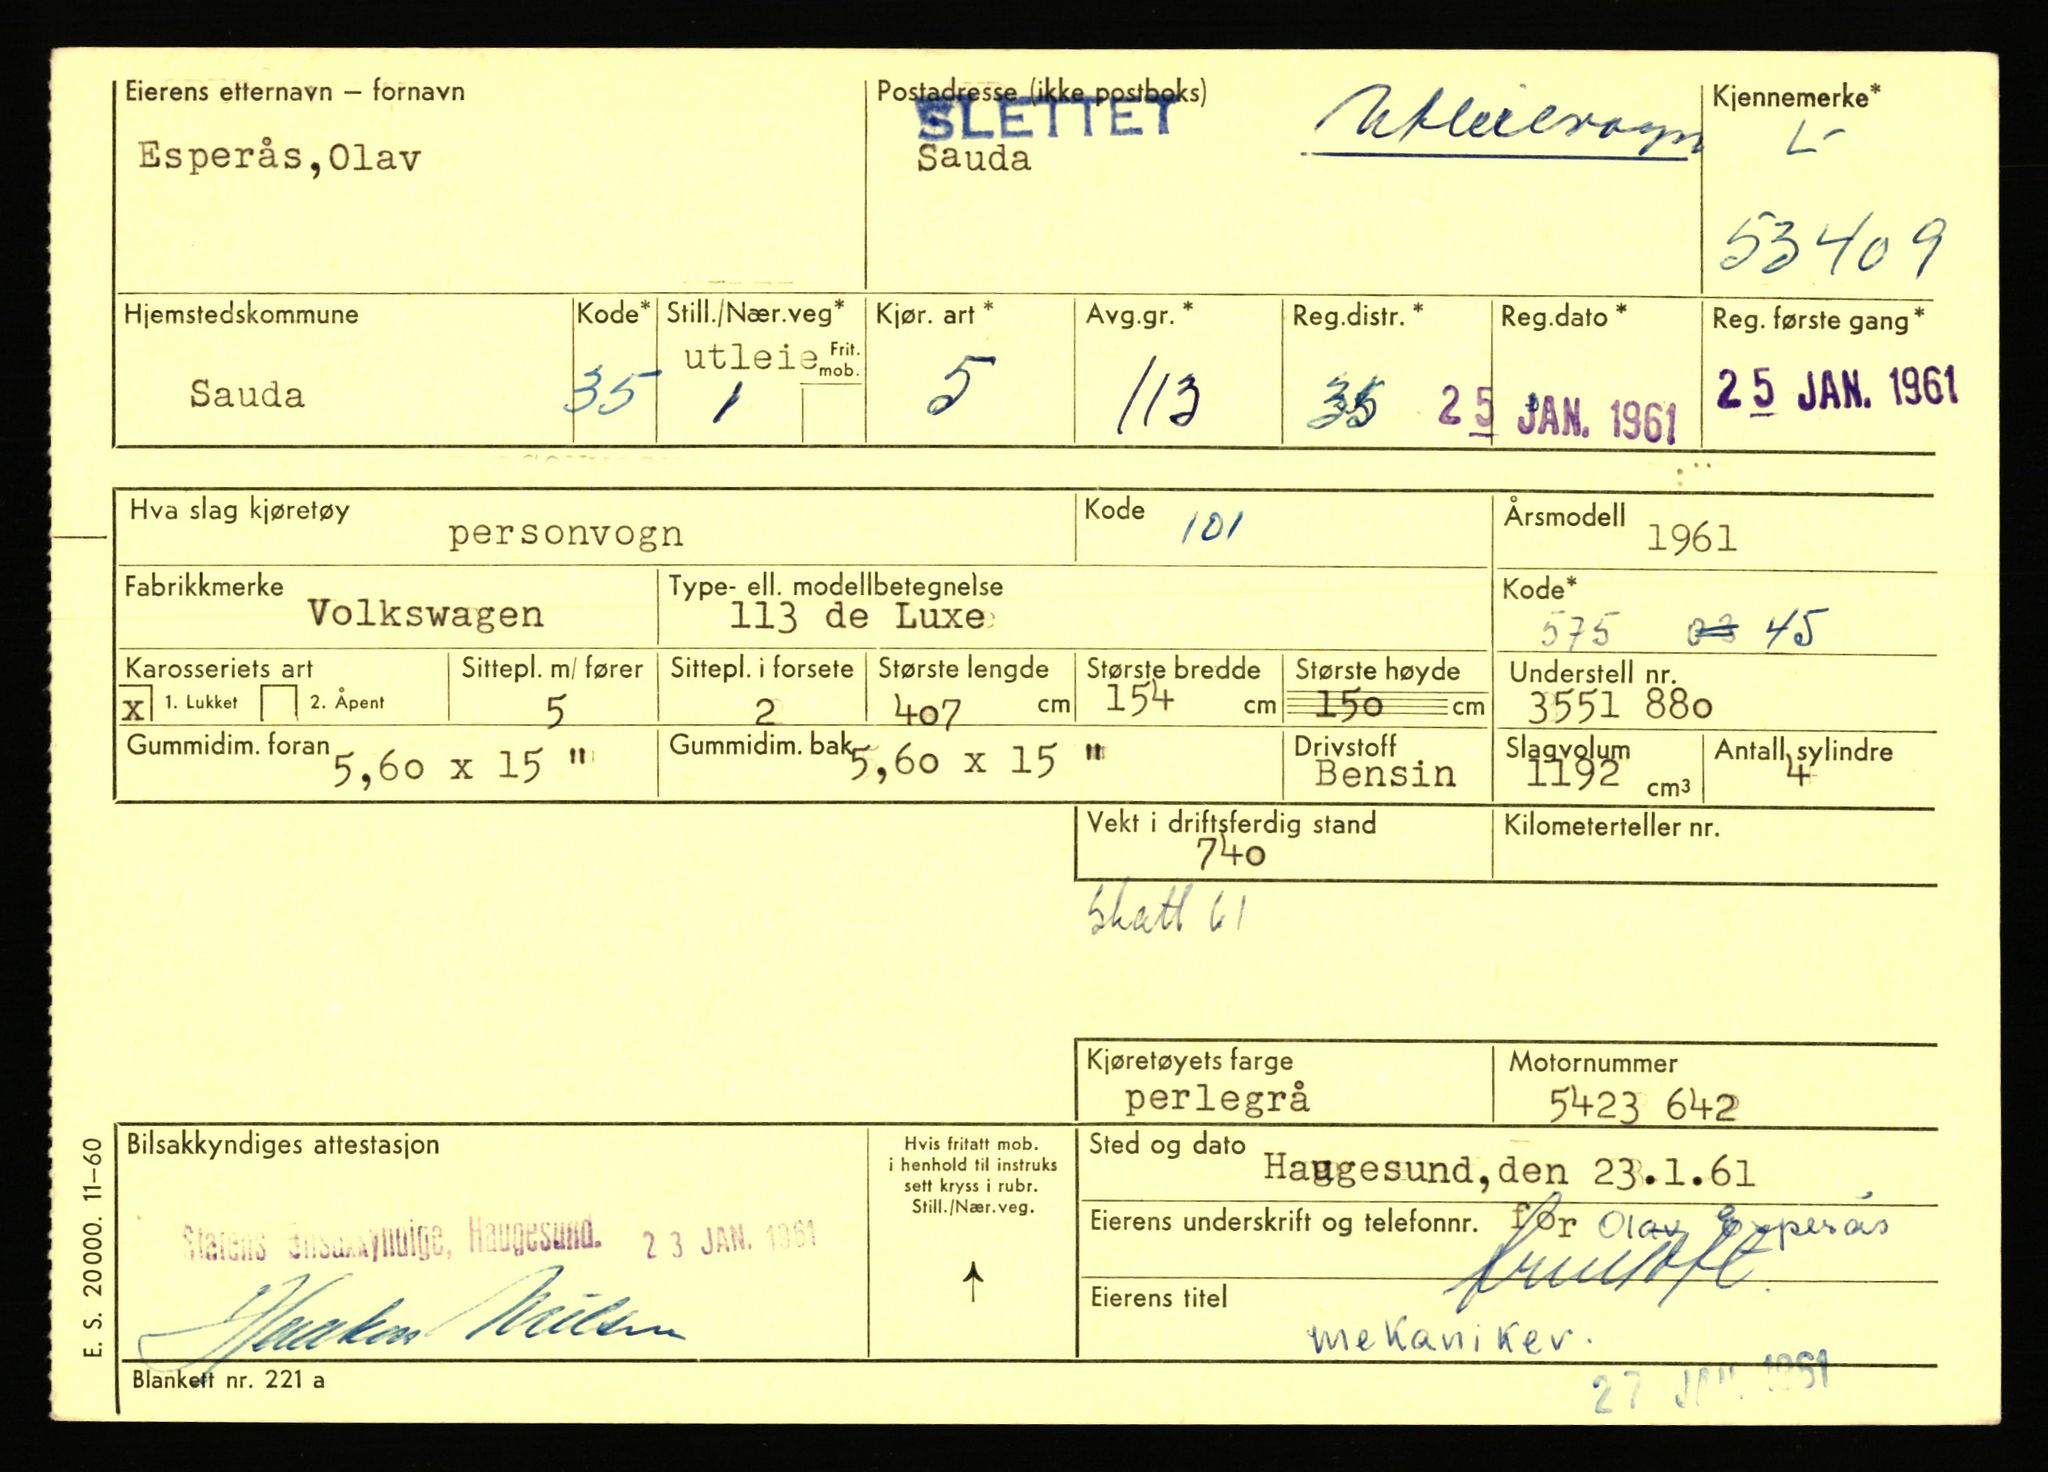 Eierens etternavn – fornavn
Esperås,Olav
Postadresse (ikke postboks)
SLETTET
Sauda
Utleievogn
Kjennemerke*
L-
53409
Hjemstedskommune
Sauda
Kode*
35
Still./Nær.veg*
utleie
Frit. mob.
1
Kjør. art *
5
Avg.gr. *
113
Reg.distr. *
35
Reg.dato *
25 JAN. 1961
Reg. første gang*
25 JAN. 1961
Hva slag kjøretøy
personvogn
Kode
101
Årsmodell
1961
Fabrikkmerke
Volkswagen
Type- ell. modellbetegnelse
113 de Luxe
Kode*
575 45
Karosseriets art
x 1. Lukket 2. Åpent
Sittepl. m/ fører
5
Sittepl. i forsete
2
Største lengde
407 cm
Største bredde
154 cm
Største høyde
150 cm
Understell nr.
3551 880
Gummidim. foran
5,60 x 15 "
Gummidim. bak
5,60 x 15 "
Drivstoff
Bensin
Slagvolum
1192 cm³
Antall sylindre
4
Vekt i driftsferdig stand
740
Kilometerteller nr.
Skatt 61
Kjøretøyets farge
perlegrå
Motornummer
5423 642
Bilsakkyndiges attestasjon
Statens Bilsakkyndige, Haugesund. 23 JAN. 1961
Haakon Nilsen
Hvis fritatt mob.
i henhold til instruks
sett kryss i rubr.
Still./Nær.veg.
Sted og dato
Haugesund,den 23.1.61
Eierens underskrift og telefonnr.
for Olav Esperås
Eierens titel
mekaniker.
27 JAN. 1961
Blankett nr. 221 a
E. S. 20000. 11–60